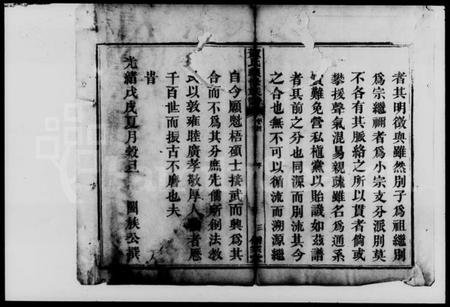 者其明徵與雖然別子為祖繼別
為宗繼禰者為小宗支分派別莫
不各有其脈絡之所以貫者倘或
攀援聲氣混易親疏雖名為通系
難免營私植黨以貽譏如茲譜
者其前之分也同源而別流其今
之合也無不可以循流而溯源繼
自今願魁梧碩士接武而興為其
合而不為其分庶先儒所創法教
以敦雍睦廣孝敬厚人者歷
千百世而振古不磨也夫
旹
光緒戊戌夏月穀旦 闔族公撰